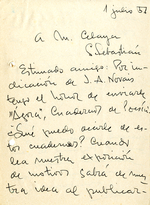 1 julio 51
A M. Celaya
S. Sebastián
"Estimado amigo: Por in-
dicación de J. A. Novais
tengo el honor de enviarle
"Ágora", Cuadernos de Poesía.
¿Qué puedo decirle de es-
tos cuadernos? Cuando
lea nuestra exposición
de motivos sabrá de nues-
tra idea al publicar-